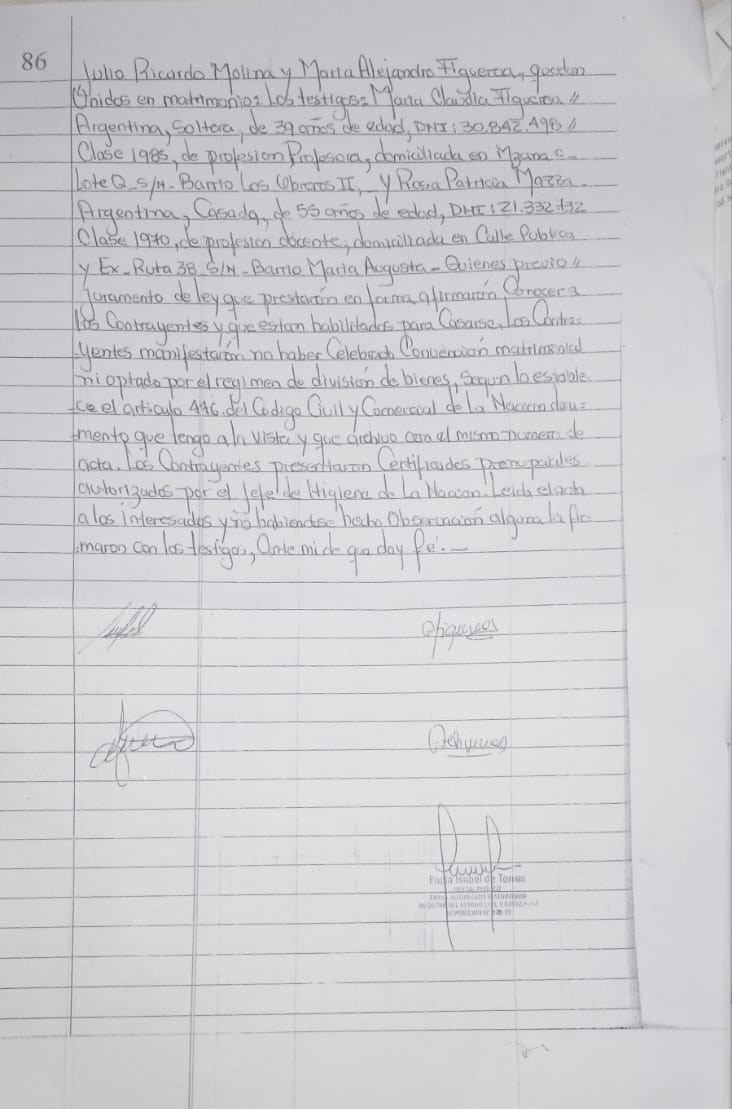 86
Julio Ricardo Molina y Maria Alejandra Figueroa, quedan
Unidos en matrimonio: Los testigos: Maria Claudia Figueroa //
Argentina, Soltera, de 39 años de edad, DNI: 30.842.498 //
Clase 1985, de profesion Profesora, domiciliada en Mzana C-
Lote Q S/N- Barrio Los Obreros II, y Rosa Patricia
Argentina, Casada, de 55 años de edad, DNI: 21.332.
Clase 1970, de profesion docente, domiciliada en Calle Publica
y Ex-Ruta 38 S/N- Barrio Maria Augusta- Quienes previo //
Juramento de ley que prestarón en forma, afirmarón Conocer a
los Contrayentes y que estan habilitados para Casarse, Los Contra=
yentes manifestarón no haber Celebrado Convención matrimonial
ni optado por el regimen de división de bienes, Segun lo estable-
ce el articulo 446. del Codigo Civil y Comercial de la Nacion docu=
mento que tengo a la vista y que archivo con el mismo numero de
acta. Los Contrayentes presentaron Certificados Prenupciales
autorizados por el Jefe de Higiene de la Nacion. Leida el acta
a los interesados y no habiendose hecho Observación alguna, la fir-
maron con los testigos, Ante mi de que doy fe.-
Isabel de Torres